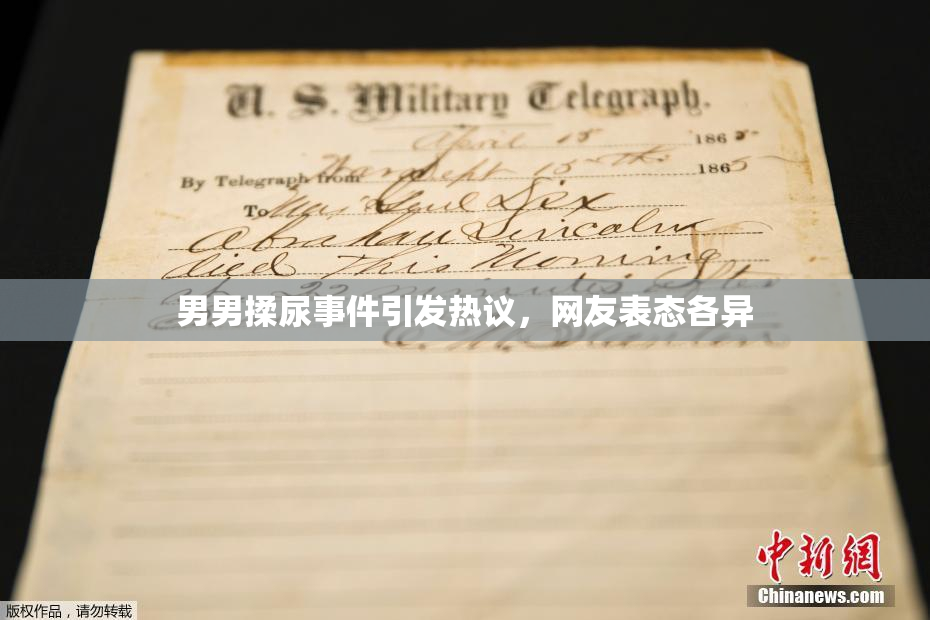 U. S. Military Telegraph.
April 15 1865
By Telegraph from War Dept 15th 1865
To Maj Genl Dix
Abraham Lincoln
died This Morning
at 22 minutes after
男男揉尿事件引发热议，网友表态各异
E. M. Stanton
中新网
Chinanews.com
版权作品，请勿转载